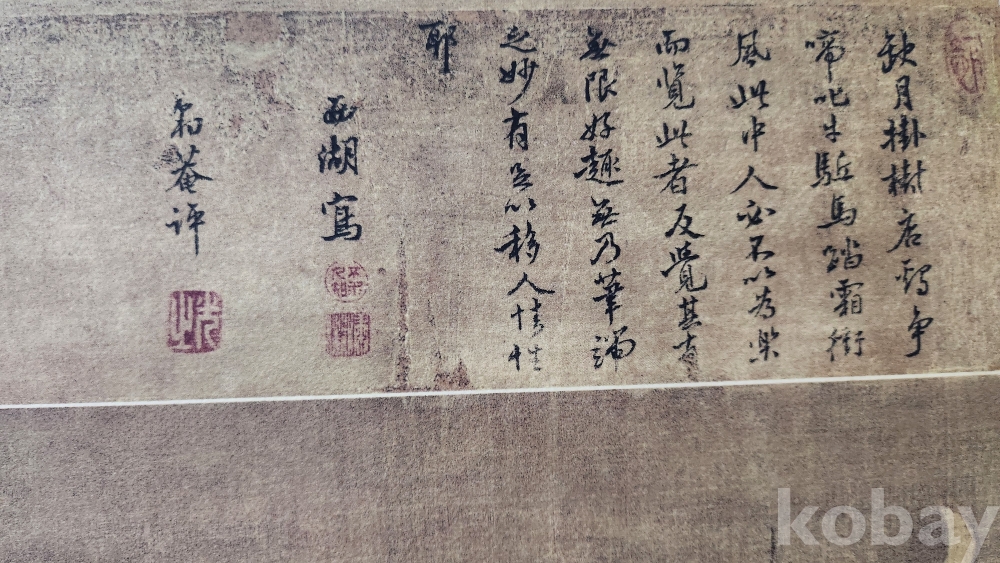 缺月掛樹店鷄争
啼叱牛駈馬踏霜衝
風此中人必不以為樂
而覽此者反覺其有
無限好趣無乃筆端
之妙有足以移人情性
耶
西湖寫
豹菴評
kobay